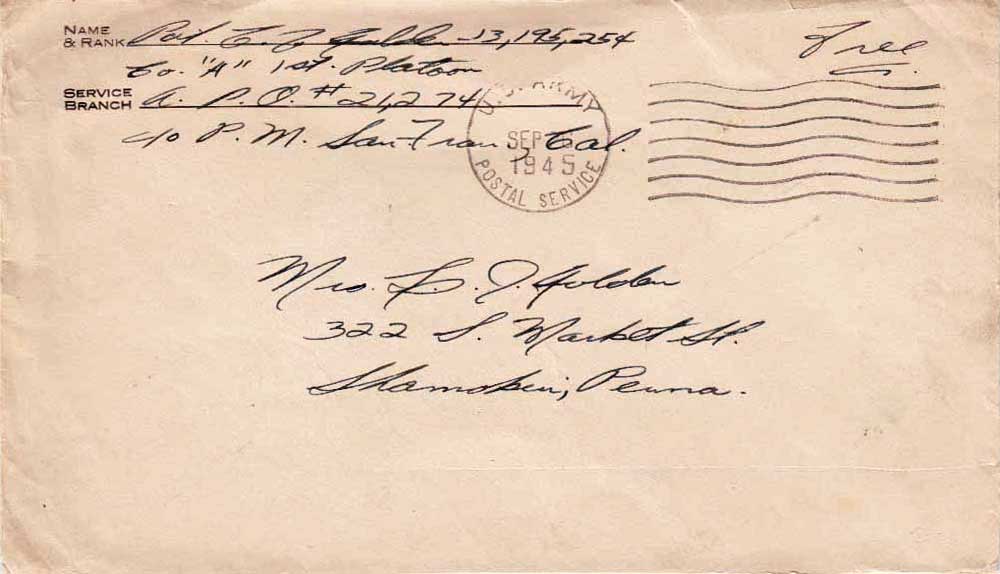 NAME
& RANK Pvt. E. J. Golden 13,195,254
Co. "A" 1st. Platoon
SERVICE
BRANCH A. P. O. # 21,274
c/o P. M. San-Fran, Cal.
Free
U.S. ARMY
SEP
1945
POSTAL SERVICE
Mrs. L. J. Golden
322 S. Market St.
Shamokin, Penna.